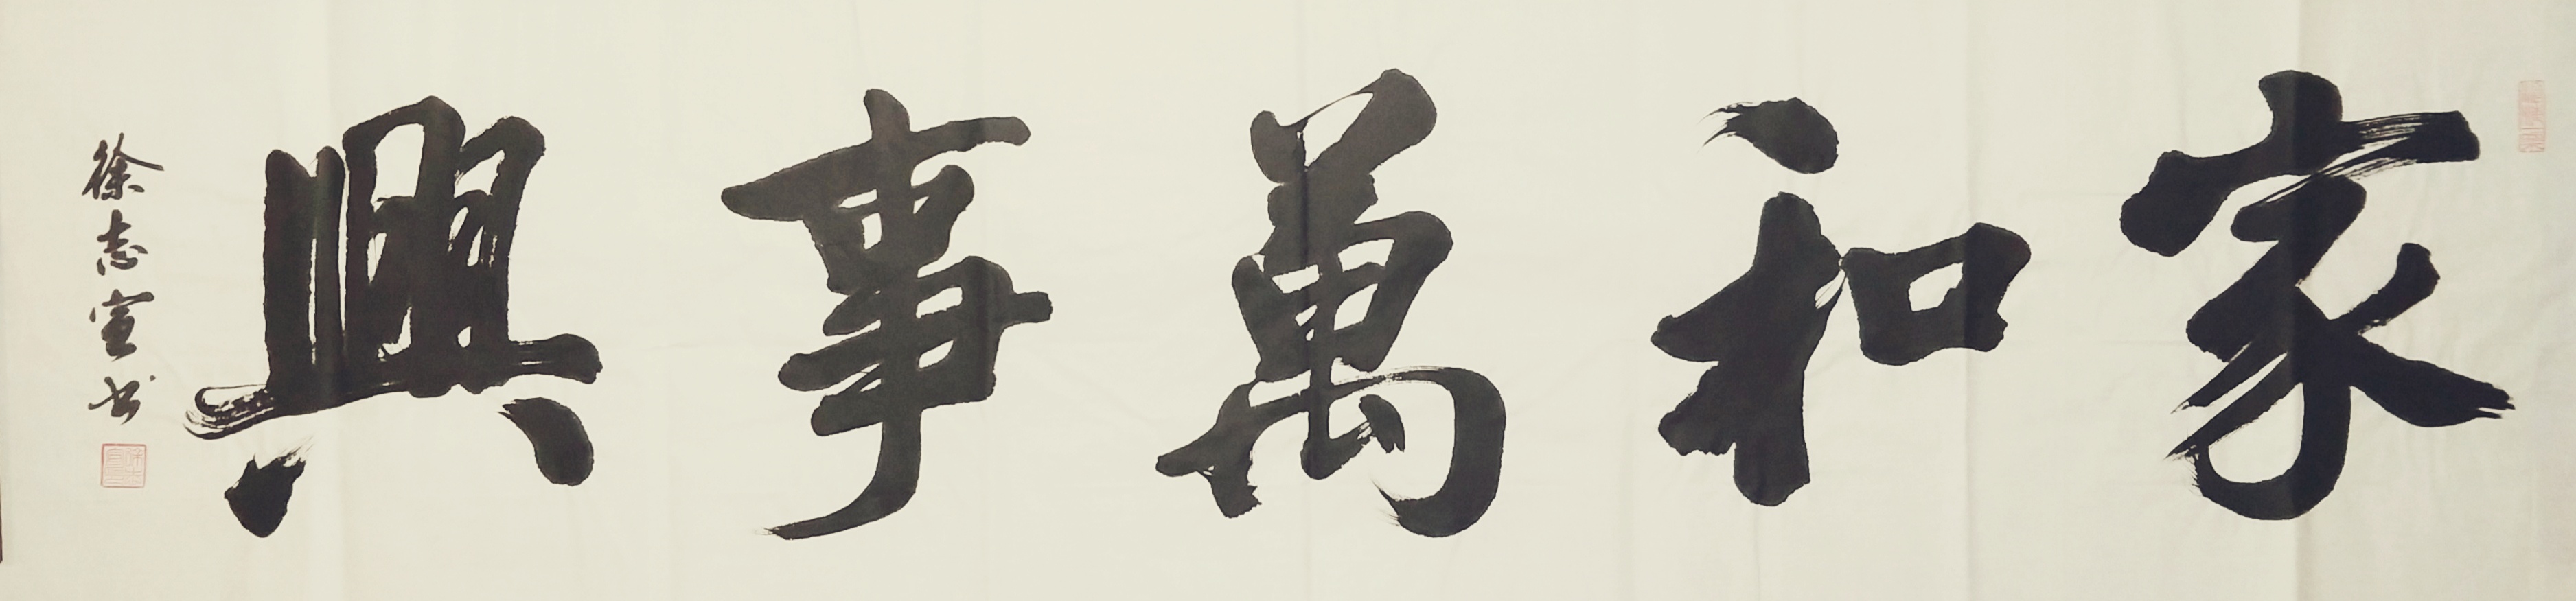 家和萬事興
徐志宣书